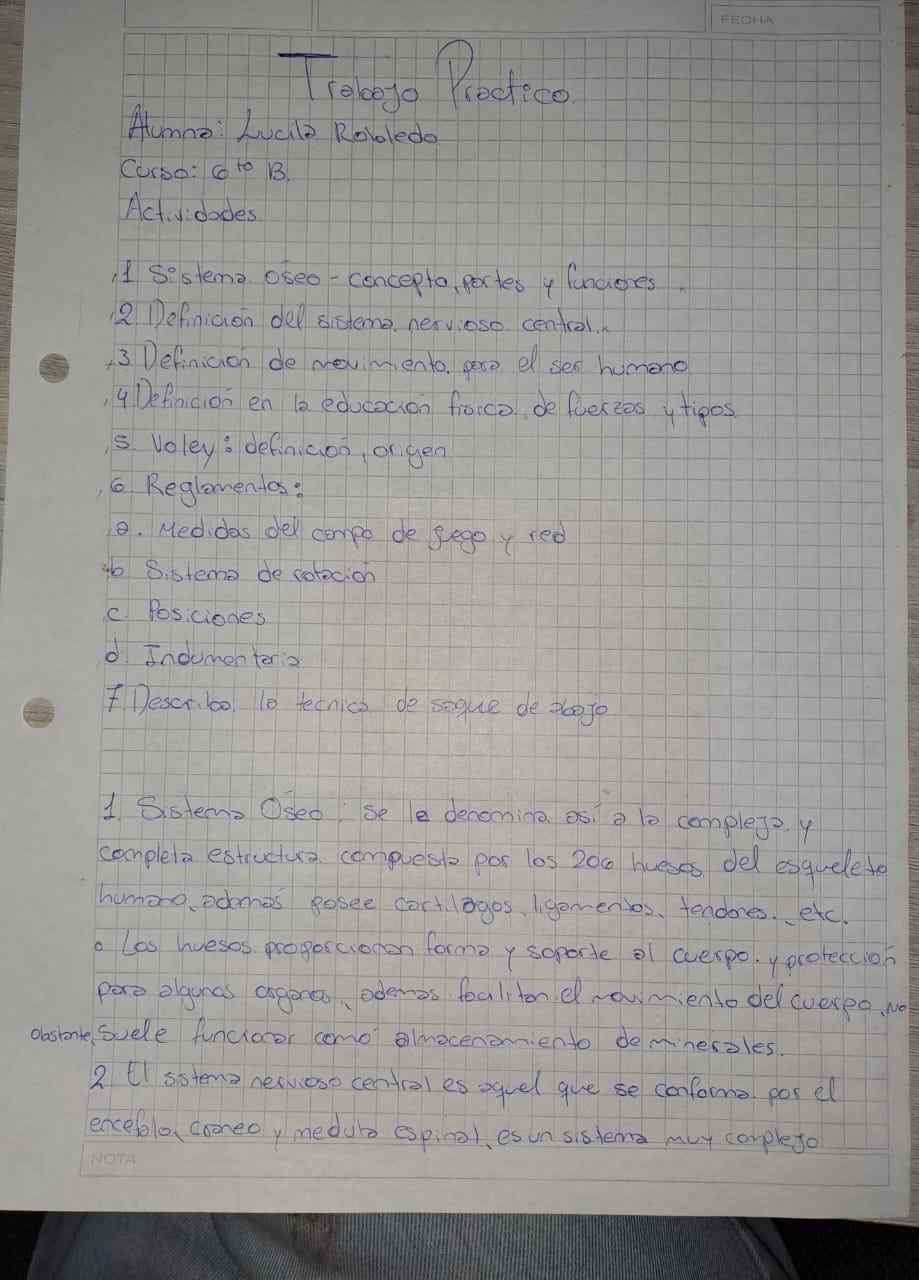 FECHA
Trabajo Practico.
Alumna: Lucila Robledo
Curso: 6to B.
Actividades
1 Sistema Oseo - concepto, partes y funciones.
2 Definición del sistema nervioso central.
3 Definición de movimiento para el ser humano
4 Definición en la educación fisica de fuerzas y tipos.
5. Voley: definición, origen
6 Reglamentos:
a. Medidas del campo de juego y red
b Sistema de rotación
c. Posiciones
d. Indumentaria
7 Describa la tecnica de saque de abajo
1. Sistema Oseo: se le denomina así a la compleja y
completa estructura compuesta por los 206 huesos del esqueleto
humano, ademas posee cartilagos, ligamentos, tendones, etc.
• Los huesos proporcionan forma y soporte al cuerpo y protección
para algunos organos, ademas facilitan el movimiento del cuerpo, No
obstante, suele funcionar como almacenamiento de minerales.
2. El sistema nervioso central es aquel que se conforma por el
encefalo, craneo y medula espinal, es un sistema muy complejo
NOTA